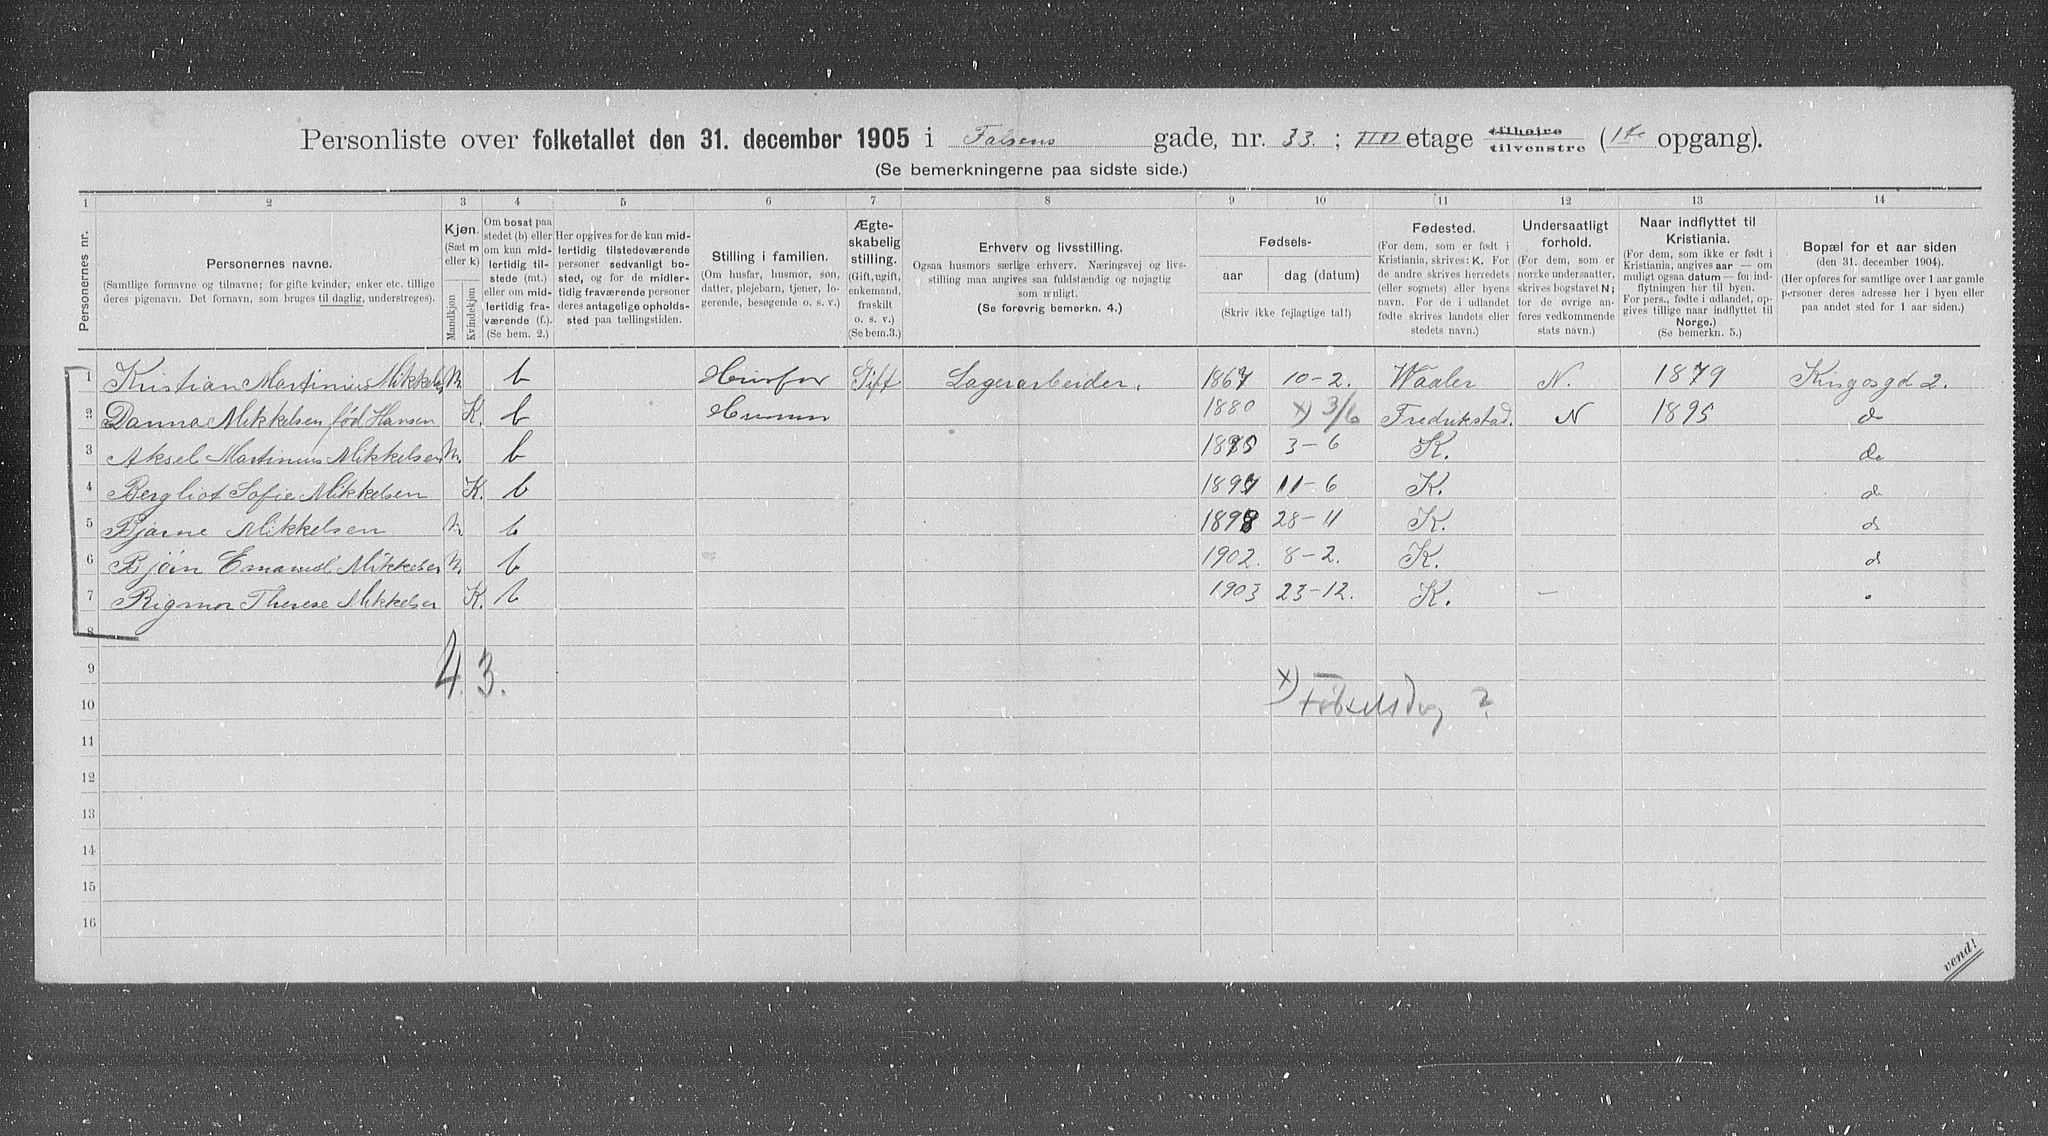 Personliste over folketallet den 31. december 1905 i Falsens gade, nr. 33. ; IIII etage tilhøire tilvenstre (1te opgang).
(Se bemerkningerne paa sidste side.)
1 2 3 4 5 6 7 8 9 10 11 12 13 14
Personernes nr.
Personernes navne.
(Samtlige fornavne og tilnavne; for gifte kvinder, enker etc. tillige deres pigenavn. Det fornavn, som bruges til daglig, understreges).
Kjøn.
(Sæt m eller k)
Mandkjøn
Kvindekjøn
Om bosat paa stedet (b) eller om kun midlertidig tilstede (mt.) eller om midlertidig fraværende (f.). (Se bem. 2.)
Her opgives for de kun midlertidig tilstedeværende personer sedvanligt bosted, og for de midlertidig fraværende personer deres antagelige opholdssted paa tællingstiden.
Stilling i familien.
(Om husfar, husmor, søn, datter, plejebarn, tjener, logerende, besøgende o. s. v.)
Ægteskabelig stilling.
(Gift, ugift, enkemand, fraskilt o. s. v.)
(Se bem.3.)
Erhverv og livsstilling.
Ogsaa husmors særlige erhverv. Næringsvej og livsstilling maa angives saa fuldstændig og nøjagtig som muligt.
(Se forøvrig bemerkn. 4.)
Fødsels-
aar dag (datum)
(Skriv ikke fejlagtige tal!)
Fødested.
(For dem, som er født i Kristiania, skrives: K. For de andre skrives herredets (eller sognets) eller byens navn. For de i udlandet fødte skrives landets eller stedets navn.)
Undersaatligt forhold.
(For dem, som er norske undersaatter, skrives bogstavet N; for de øvrige anføres vedkommende stats navn.)
Naar indflyttet til Kristiania.
(For dem, som ikke er født i Kristiania, angives aar — om muligt ogsaa datum — for indflytningen her til byen. For pers., fødte i udlandet, opgives tillige naar indflyttet til Norge.)
(Se bemerkn. 5.)
Bopæl for et aar siden
(den 31. december 1904).
(Her opføres for samtlige over 1 aar gamle personer deres adresse her i byen eller paa andet sted for 1 aar siden.)
1 Kristian Martinius Mikkelsen m. b Husfar Gift Lagerarbeider. 1867 10-2. Waaler N. 1879 Kingosgd 2.
2 Danna Mikkelsen fød Hansen K. b Husmor 1880 x) 3/6 Fredrikstad. N 1895 do
3 Aksel Martinius Mikkelsen m. b 1895 3-6 K. do
4 Bergliot Sofie Mikkelsen K. b 1897 11-6 K. do
5 Bjarne Mikkelsen m b 1898 28-11 K. do
6 Bjørn Emanuel Mikkelsen m. b 1902. 8-2. K. do
7 Rigmor Therese Mikkelsen K. b 1903 23-12. K. —
8
4. 3.
9
x) Fødselsdag ?
10
11
12
13
14
15
16
vend!